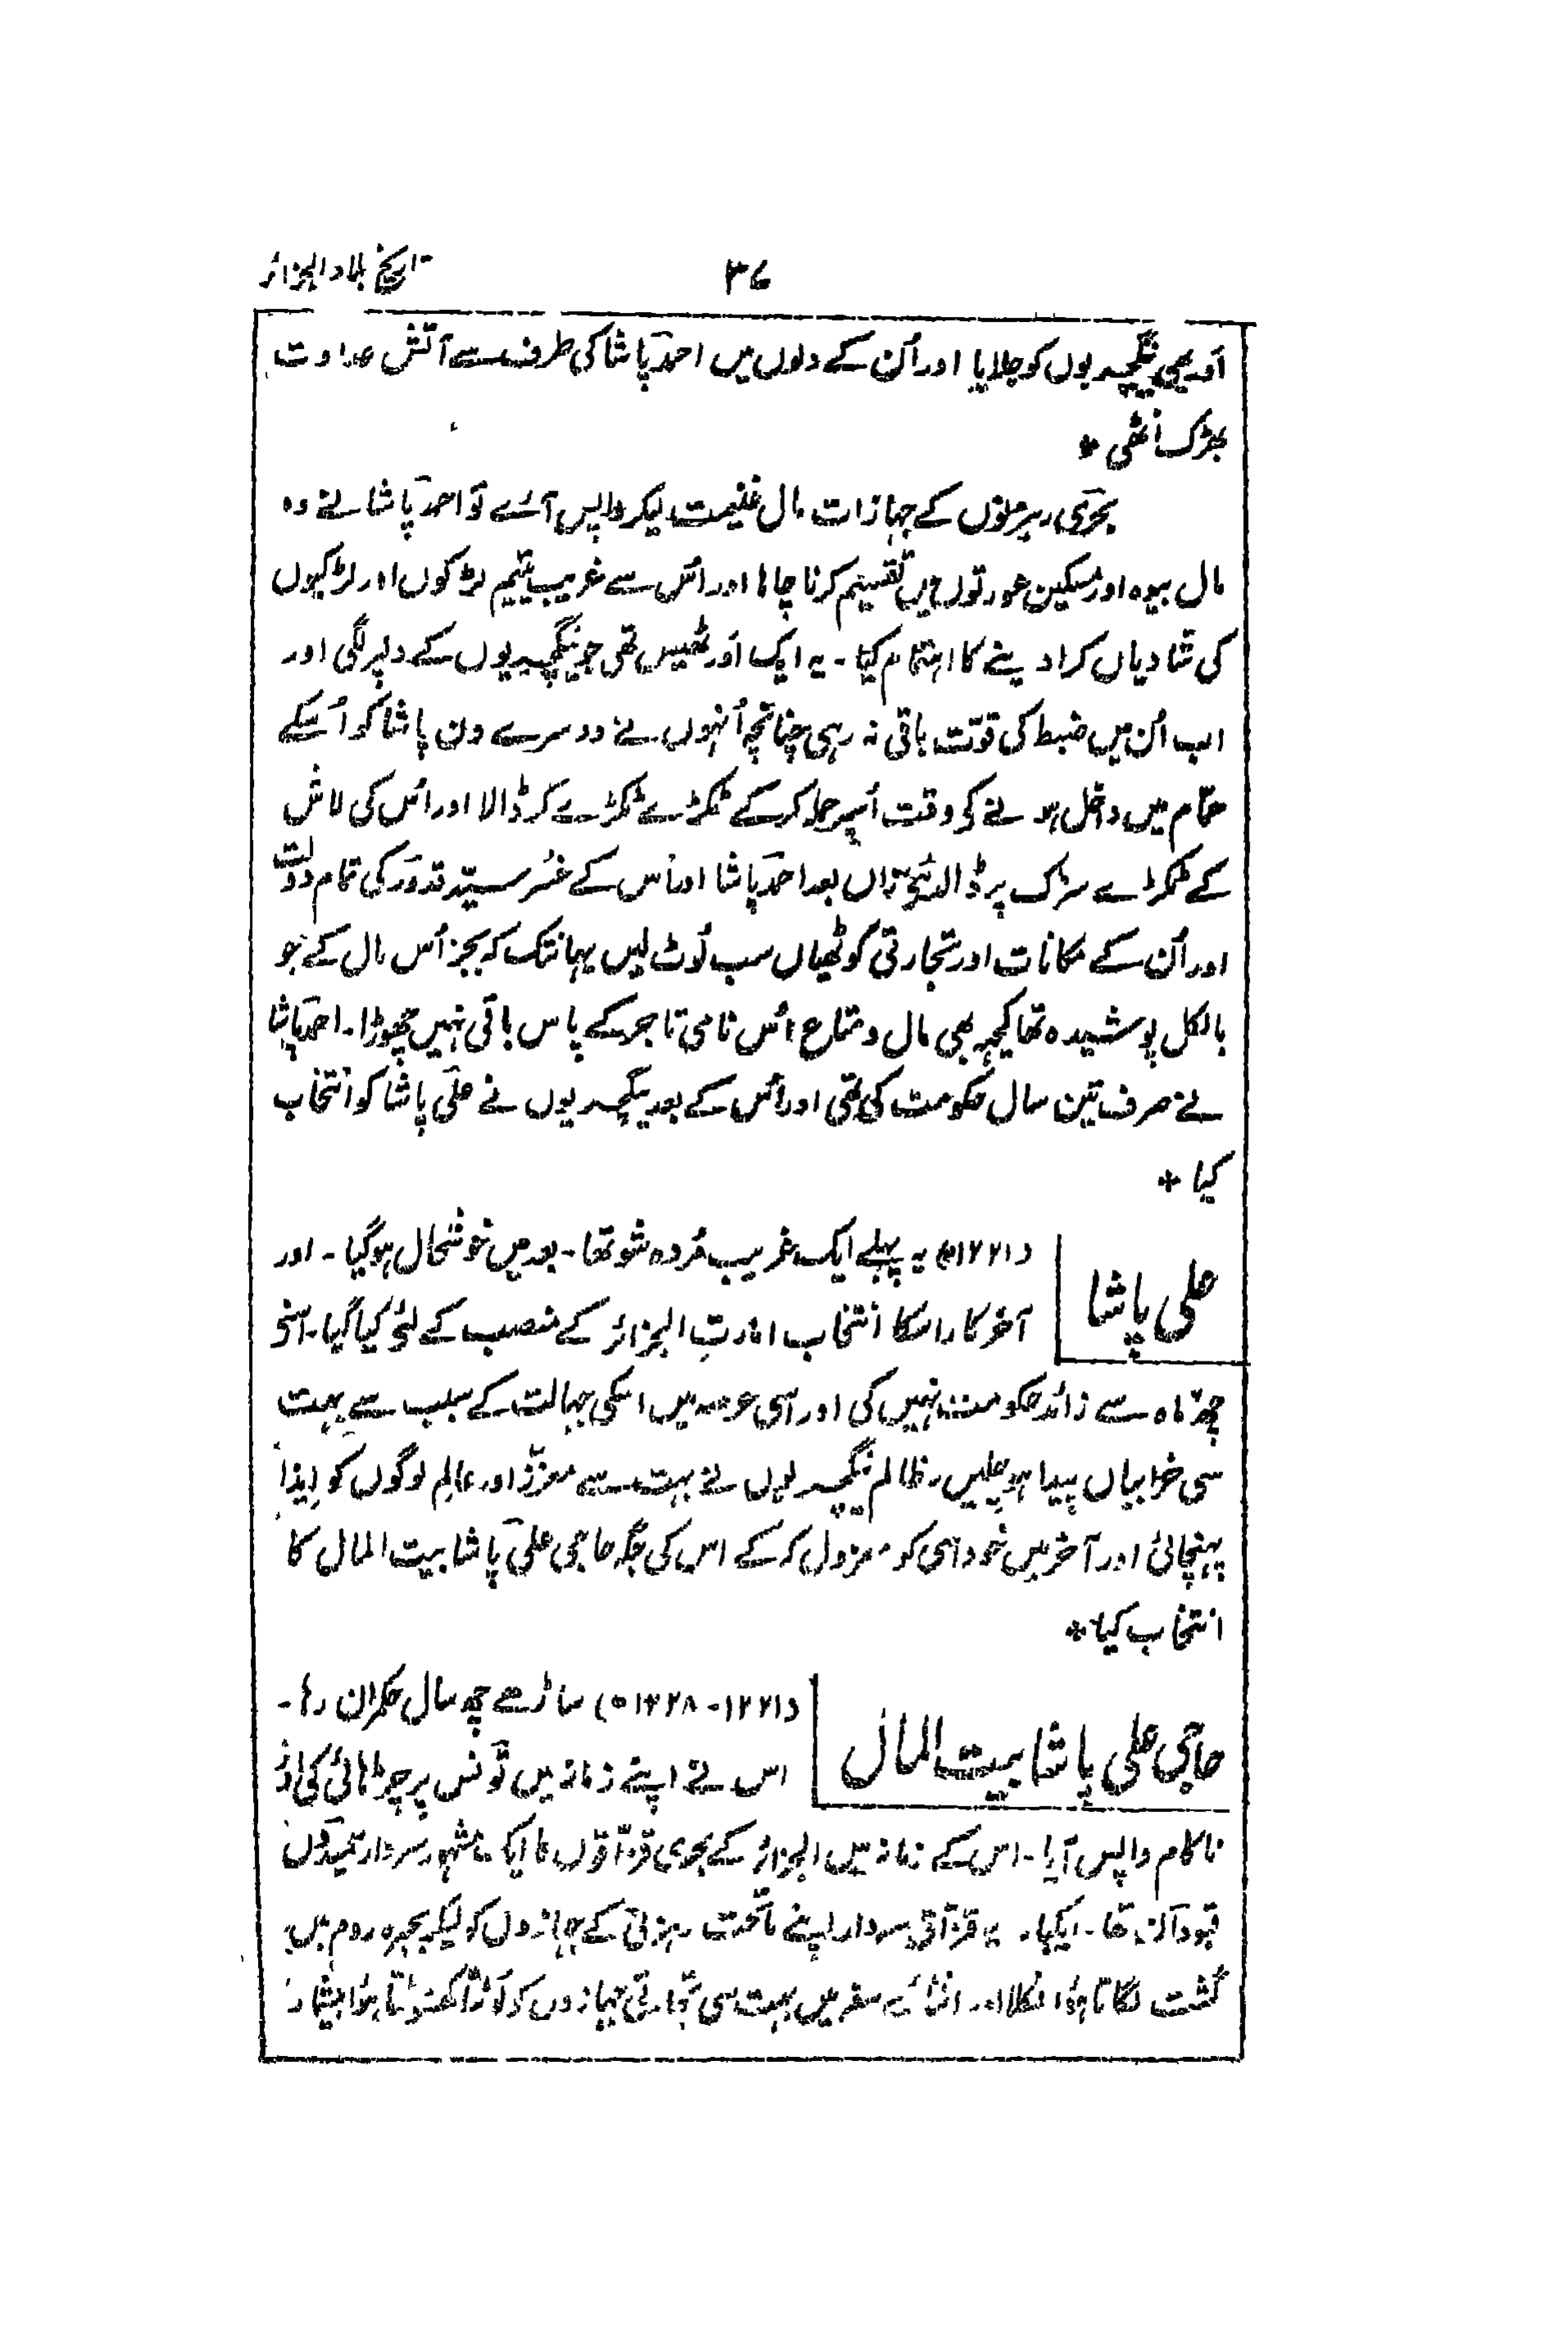 تاریخ بلاد الجزائر
۳۷
اَور بھی ینگچریوں کو جلایا اور اُن کے دلوں میں احمد پاشا کی طرف سے آتش عداوت
بھڑک اُٹھی *
بحری رہزنوں کے جہازات مال غنیمت لیکر واپس آئے تو احمد پاشا نے وہ
مال بیوہ اور مسکین عورتوں میں تقسیم کرنا چاہا اور اس سے غریب یتیم لڑکوں اور لڑکیوں
کی شادیاں کرا دینے کا اہتمام کیا۔ یہ ایک اَور ٹھیس تھی جو ینگچریوں کے دلپر لگی اور
اب اُن میں ضبط کی قوّت باقی نہ رہی چنانچہ اُنہوں نے دوسرے دن پاشا کو اُسکے
حمّام میں داخل ہونے کے وقت اُسپر حملہ کر کے ٹکڑے ٹکڑے کر ڈالا اور اُس کی لاش
کے ٹکڑے سڑک پر ڈالدئیے زاں بعد احمد پاشا اور اُس کے خسر سیّد قدور کی تمام دولت
اور اُن کے مکانات اور تجارتی کوٹھیاں سب لُوٹ لیں یہانتک کہ بجز اُس مال کے جو
بالکل پوشیدہ تھا کچھ بھی مال و متاع اُس نامی تاجر کے پاس باقی نہیں چھوڑا۔ احمد پاشا
نے صرف تین سال حکومت کی تھی اور اُس کے بعد ینگچریوں نے علی پاشا کو انتخاب
کیا *
علی پاشا
(۱۲۲۱ھ) یہ پہلے ایک غریب مُردہ شو تھا۔ بعد میں خوشحال ہوگیا۔ اور
آخر کار اسکا انتخاب امارتِ الجزائر کے منصب کے لئے کیا گیا۔ اسنے
چھ ماہ سے زائد حکومت نہیں کی اور اسی عرصہ میں اسکی جہالت کے سبب سے بہت
سی خرابیاں پیدا ہو چلیں۔ ظالم ینگچریوں نے بہت سے معزّز اور عالم لوگوں کو ایذا
پہنچائی اور آخر میں خود اسی کو معزول کر کے اس کی جگہ حاجی علی پاشا بیت المال کا
انتخاب کیا *
حاجی علی پاشا بیت المال
(۱۲۲۱۔ ۱۲۲۸ھ) ساڑھے چھ سال حکمران رہا۔
اس نے اپنے زمانہ میں تونس پر چڑھائی کی اور
ناکام واپس آیا۔ اس کے زمانہ میں الجزائر کے بحری قزّاقوں کا ایک مشہور سردار حمیدوں
قبودان تھا۔ ایکبار یہ قزّاقی سردار اپنے ماتحت رہزنی کے جہازوں کو لیکر بحیرہ روم میں
گشت لگاتا ہؤا نکلا اور اثنائے سفر میں بہت سی تجارتی جہازوں کو لُوٹتا کھسوٹتا ہؤا بیشمار